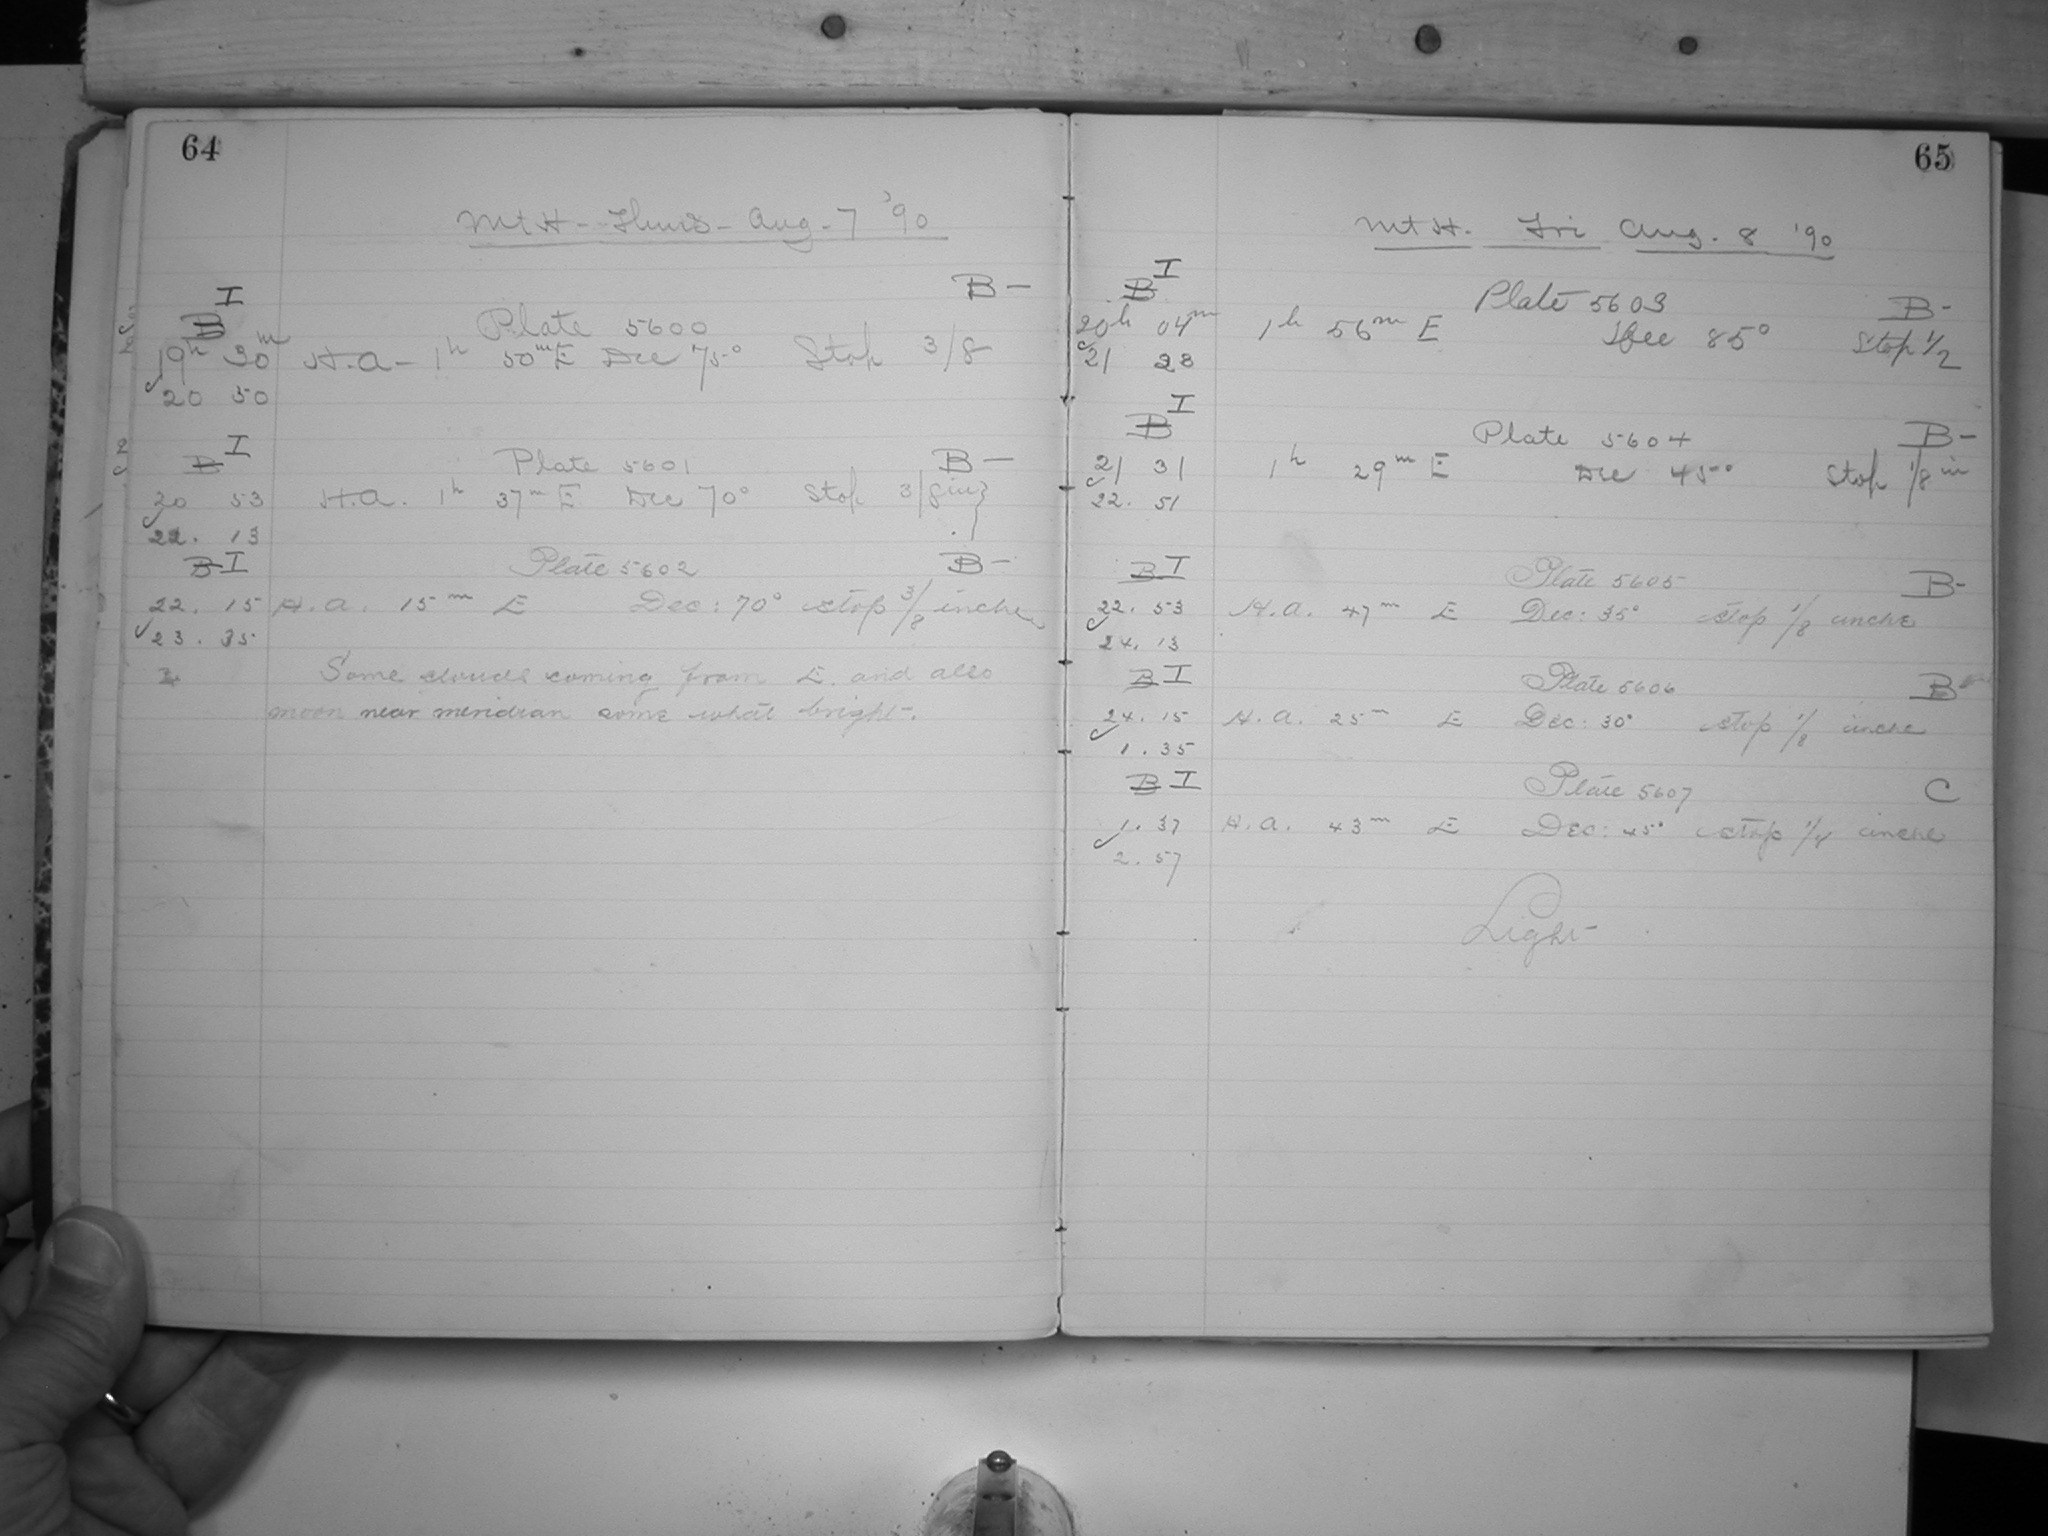 64
Mt H - Thurs - Aug. 7 '90
I B -
B Plate 5600
19h 30m H.A - 1h 50m E Dec 75° Stop 3/8
20 50
I
B Plate 5601 B -
20 53 H.A. 1h 37m E Dec 70° Stop 3/8 in
22. 13
B I Plate 5602 B -
22. 15 H.A. 15m E Dec: 70° stop 3/8 inche
23. 35
Some clouds coming from E. and also
moon near meridian some what bright.
65
Mt H. Fri Aug. 8 '90
I
B Plate 5603 B -
20h 04m 1h 56m E Dec 85° Stop 1/2
21 28
I
B Plate 5604 B -
21 31 1h 29m E Dec 45° Stop 1/8 in
22. 51
B I Plate 5605 B -
22. 53 H.A. 47m E Dec: 35° stop 1/8 inche
24. 13
B I Plate 5606 B
24. 15 H.A. 25m E Dec: 30° stop 1/8 inche
1. 35
B I Plate 5607 C
1. 37 H.A. 43m E Dec: 45° stop 1/4 inche
2. 57
Light